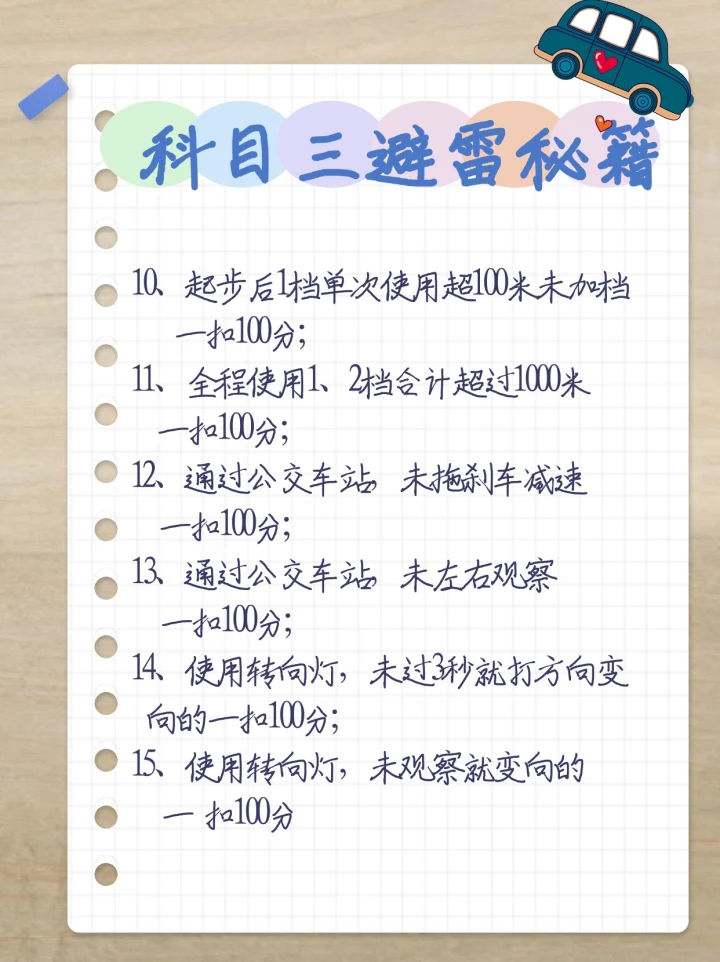 科目三避雷秘籍
10、起步后1档单次使用超100米未加档
一扣100分；
11、全程使用1、2档合计超过1000米
一扣100分；
12、通过公交车站，未拖刹车减速
一扣100分；
13、通过公交车站，未左右观察
一扣100分；
14、使用转向灯，未过3秒就打方向变
向的一扣100分；
15、使用转向灯，未观察就变向的
一 扣100分